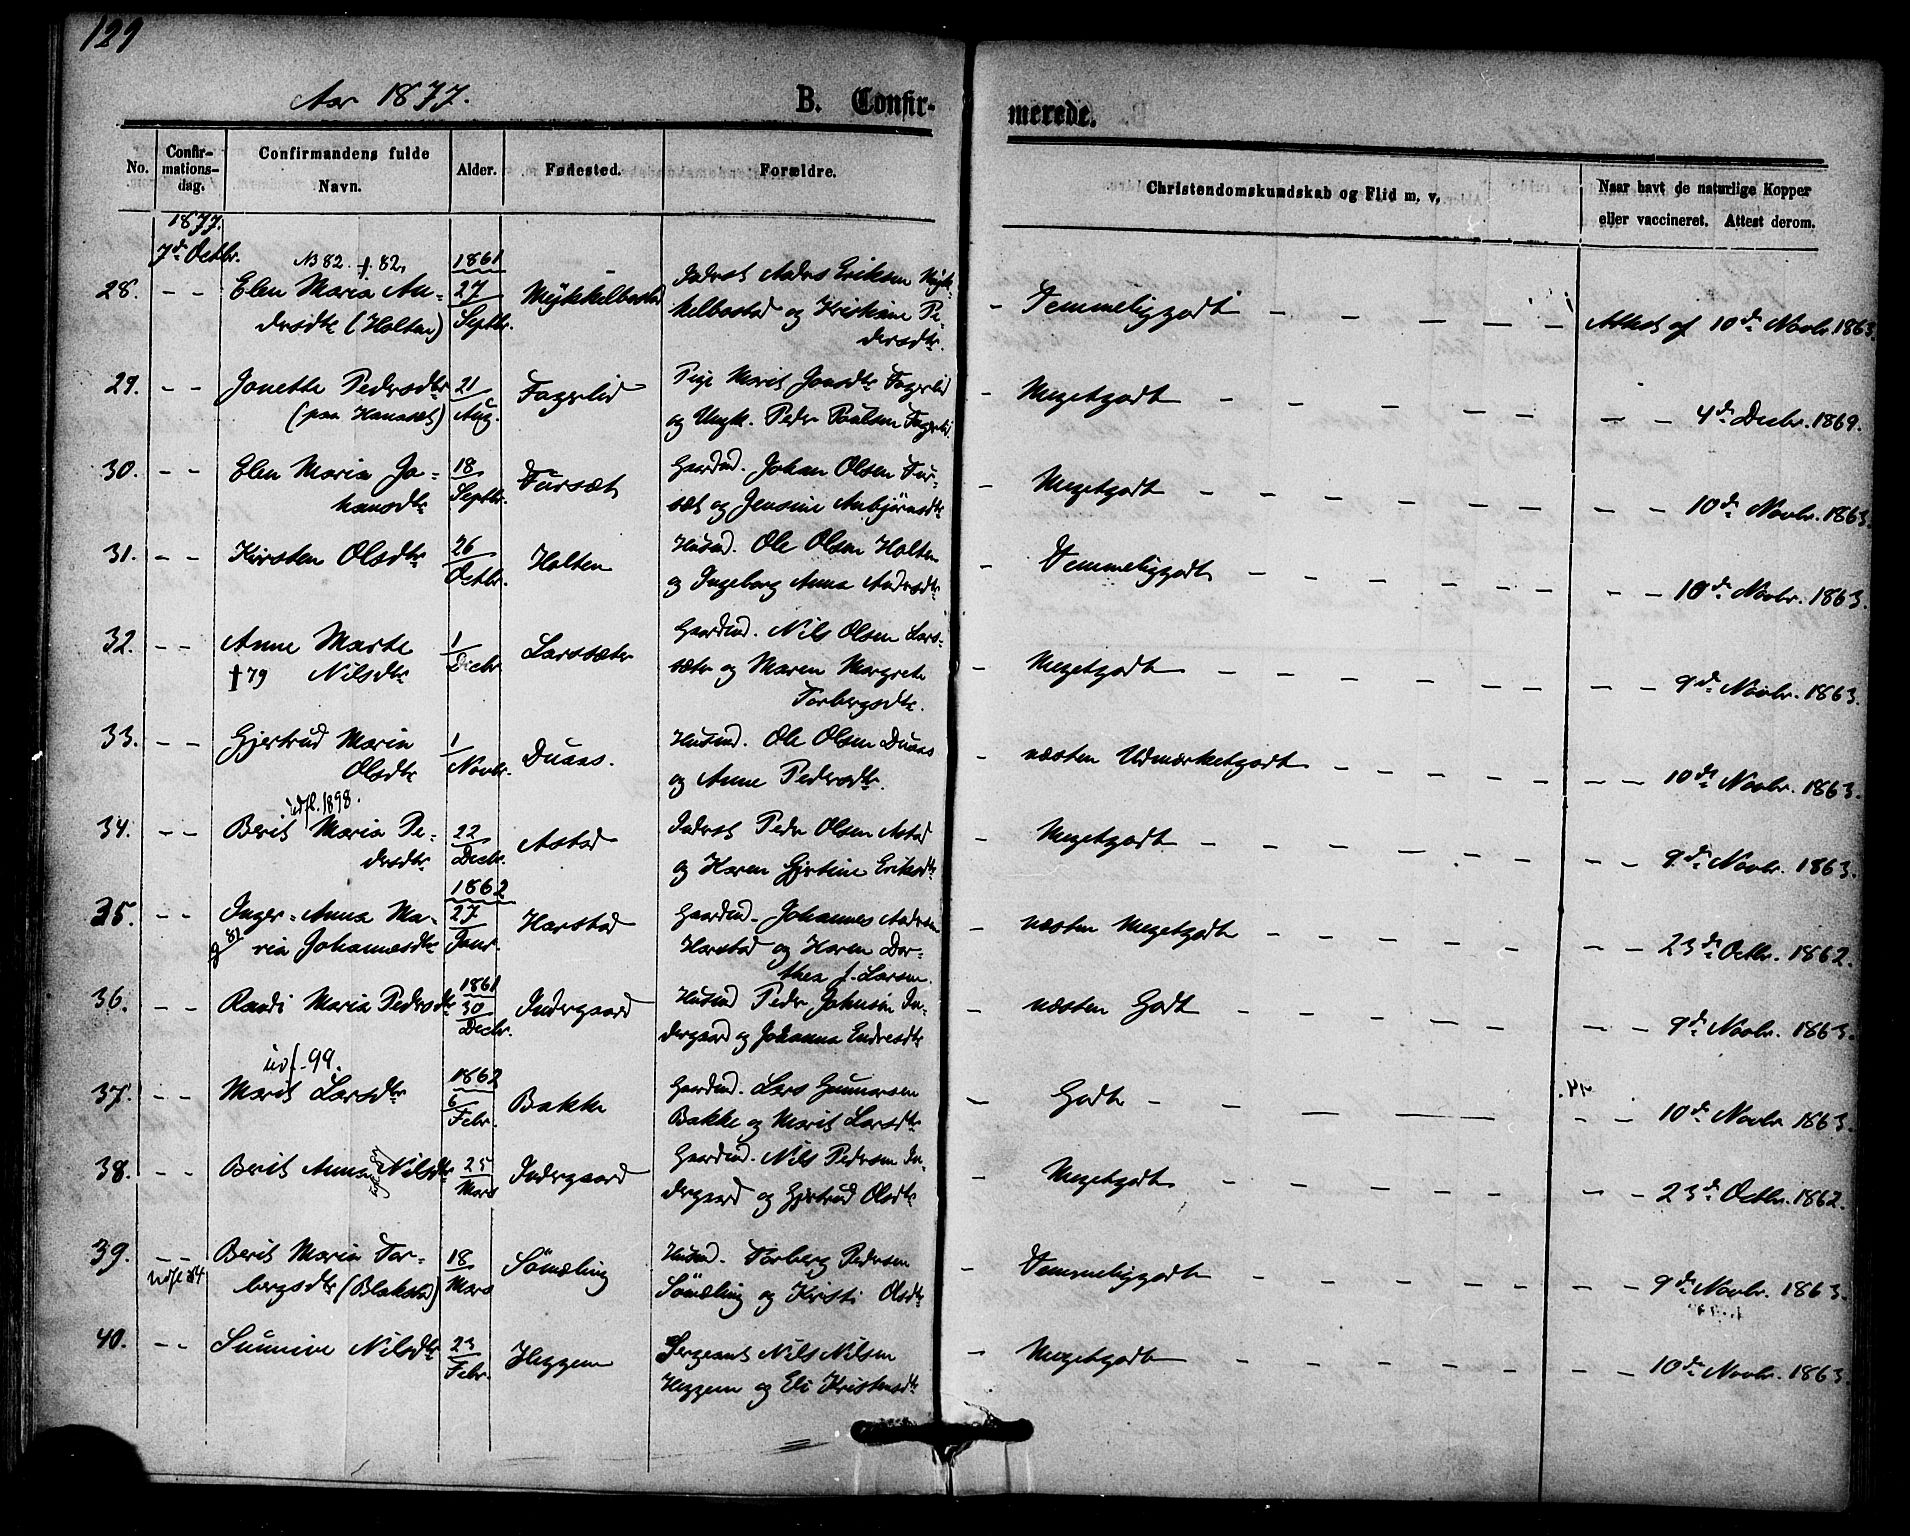 129
Aar 1877.
B. Confir-
merede.
No.
Confir-
mations-
dag.
Confirmandens fulde
Navn.
Alder.
Fødested.
Forældre.
Christendomskundskab og Flid m. v.
Naar havt de naturlige Kopper
eller vaccineret. Attest derom.
1877.
7de Octbr.
28. - - Elen Maria An-
dersdtr (Holten)
1861
27
Septbr.
Mykkelbostad
Indrst Anders Eriksen Myk-
kelbostad og Kristiane Pe-
dersdtr.
- Temmeliggodt - - - - - Attest af 10de Novbr. 1863.
29. - - Jonetta Pedersdtr
(paa Hanæs)
21
Aug.
Fagerlid
Pige Marit Jonsdtr Fagerlid
og Ungk. Peder Paulsen Fagerlid.
- Megetgodt - - - - - - 4de Decbr. 1869.
30. - - Elen Maria Jo-
hansdtr
18
Septbr.
Fursæt
Gaardmd. Johan Olsen Fur-
sæt og Jensine Anbjørnsdtr
- Megetgodt - - - - - - 10de Novbr. 1863.
31. - - Kirsten Olsdtr
26
Octbr.
Holten
Husmd. Ole Olsen Holten
og Ingeborg Anna Andersdtr
- Temmeliggodt - - - - - - 10de Novbr. 1863.
32. - - Anne Marte
†79 Nilsdtr
1
Decbr
Larssæter
Gaardmd. Nils Olsen Lars-
sæter og Maren Margrete
Torbergsdtr.
- Megetgodt - - - - - - 9de Novbr. 1863.
33. - - Gjertrud Maria
Olsdtr
1
Novbr.
Duaas.
Husmd. Ole Olsen Duaas
og Anne Pedersdtr.
- næsten Udmærketgodt - - - - - - 10de Novbr. 1863.
udfl. 1898.
34. - - Berit Maria Pe-
dersdtr
22
Decbr.
Astad
Indrst Peder Olsen Astad
og Karen Gjertine Eriksdtr
- Megetgodt - - - - - - 9de Novbr. 1863.
35. - - Inger-Anna Ma-
ria Johannesdtr
1862
27
Janr.
Harstad
Gaardmd. Johannes Andersen
Harstad og Karen Dor-
thea J. Larsen.
- næsten Megetgodt - - - - - - 23de Octbr. 1862.
36. - - Randi Maria Pedersdtr
1861
30
Decbr.
Indergaard
Husmd Peder Johnsen In-
dergaard og Johanna Endresdtr
- næsten Godt - - - - - - 9de Novbr. 1863.
udf. 99.
37. - - Marit Larsdtr
1862
6
Febr.
Bakke
Gaardmd. Lars Gunnarsen
Bakke og Marit Larsdtr
- Godt - - - - - - 10de Novbr 1863.
38. - - Berit Anna Nilsdtr
25
Mars
Indergaard
Gaardmd. Nils Pedersen In-
dergaard og Gjertrud Olsdtr
- Megetgodt - - - - - - 23de Octbr. 1862.
39. - - Berit Maria Tor-
udfl 84 bergsdtr (Blakstad)
18
Mars
Sømæling
Husmd. Torberg Pedersen
Sømæling og Kristi Olsdtr
- Temmeliggodt - - - - - - 9de Novbr. 1863.
40. - - Sunnive Nilsdtr
23
Febr.
Heggem
Sergeant Nils Nilsen
Heggem og Eli Kristensdtr
- Megetgodt - - - - - - 10de Novbr. 1863.